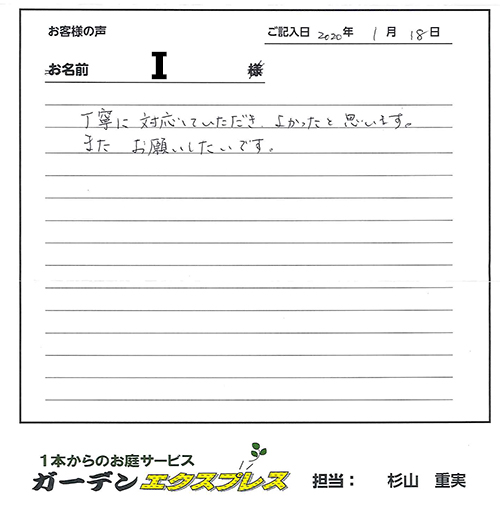 お客様の声
ご記入日 2020年 1月 18日
お名前 I 様
丁寧に対応していただき、よかったと思います。
また お願いしたいです。
1本からのお庭サービス
ガーデンエクスプレス 担当： 杉山 重実